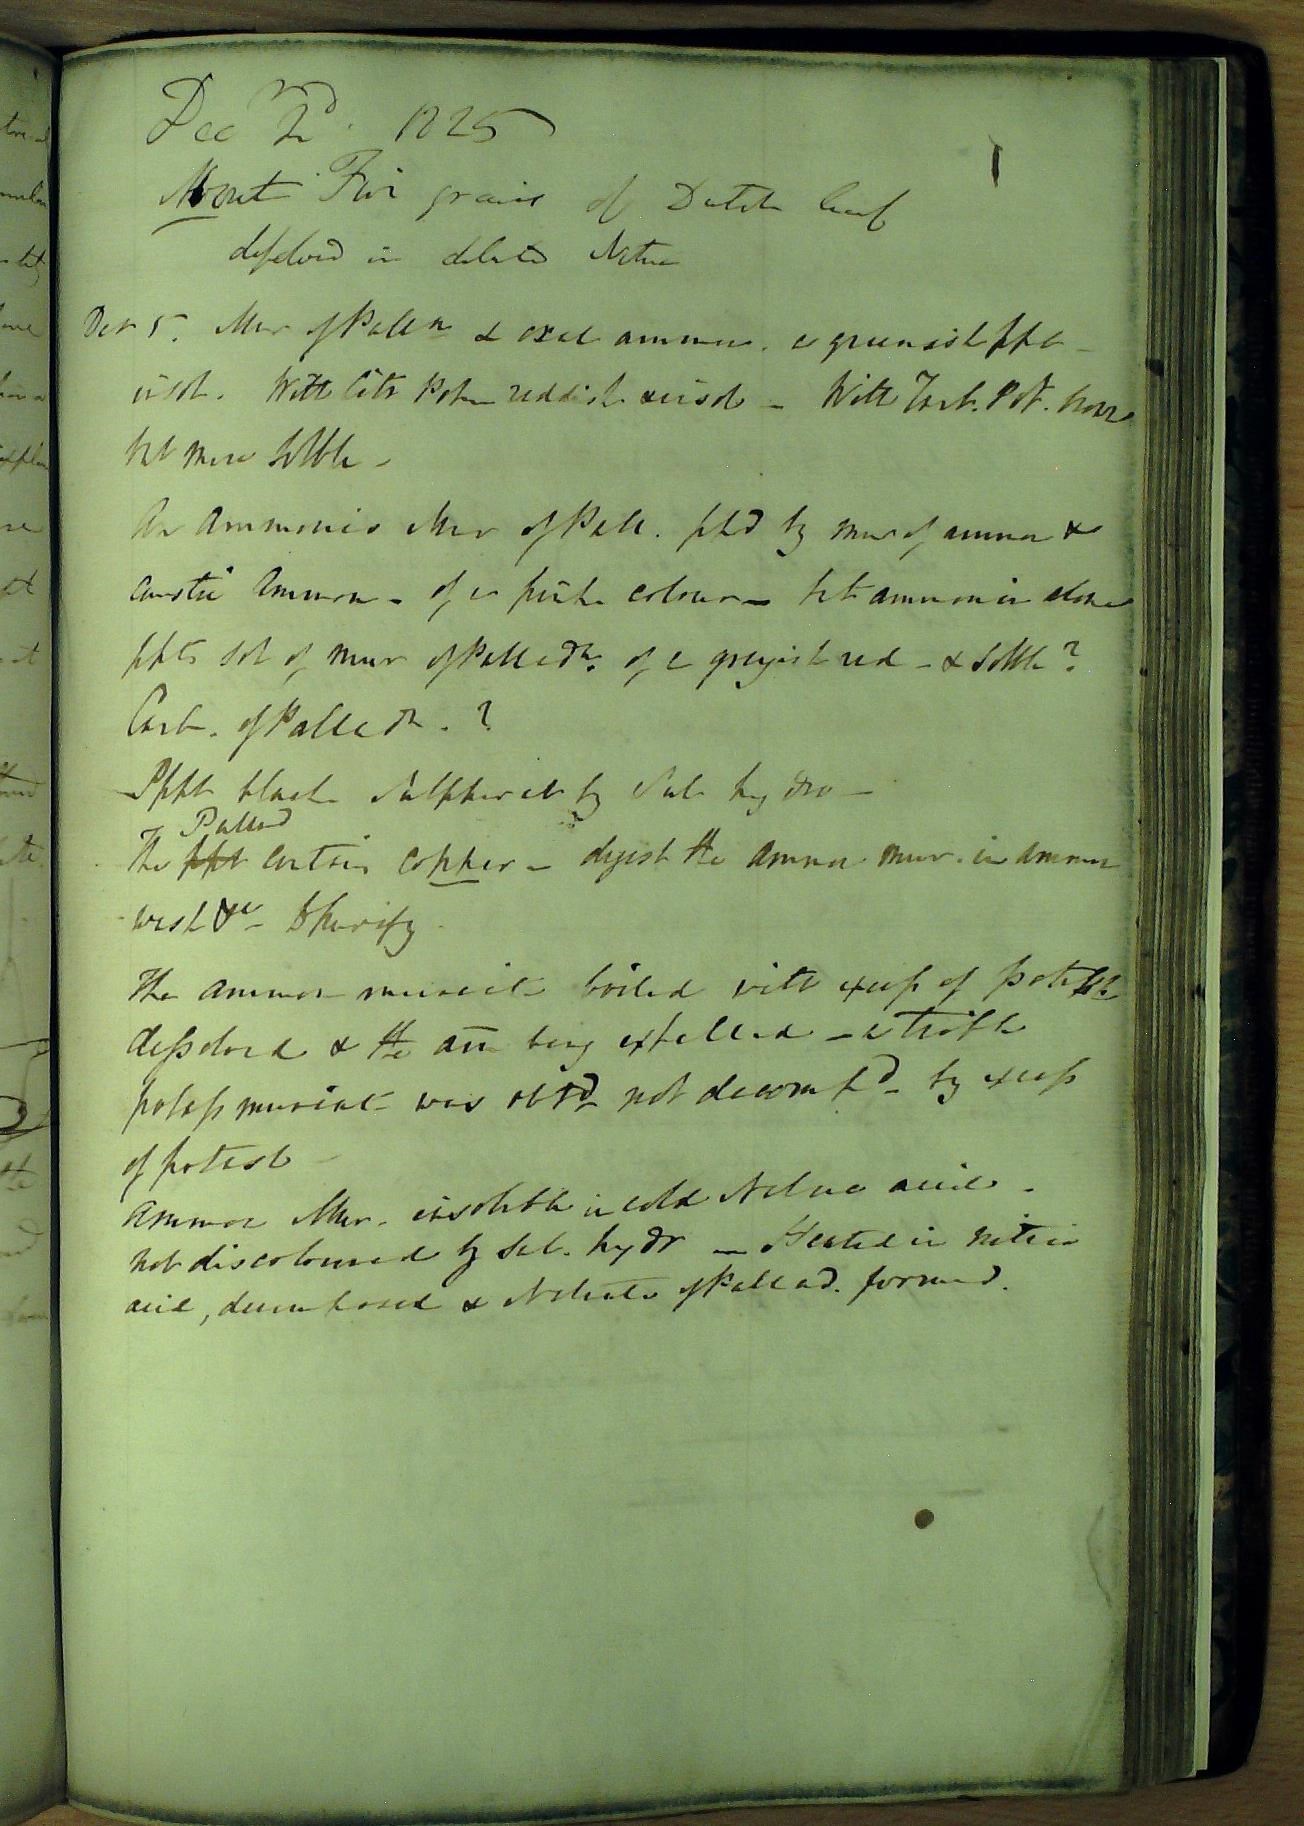 Dec 2d. 1825
Five grains of Dutch leaf
dissolved in dilute Nitric
Dec 5. Mur of Palln & oxal ammon. a greenish ppt -
insol. With Citr Potn reddish & insol - With Tart. Pot.
but more solble -
An Ammonio Mur of Pall. pptd by mur of ammon &
caustic Ammon - of a pink colour - but ammonia alone
ppts sol of mur of Palladm. of a greyish red - & solble ?
Carb. of Palladm. ?
Pppt black Sulphuret by Sul hydro -
Pallad
The ppt contains copper - digest the ammon mur. in ammon
wash &c - to purify
The ammon muriate boiled with excess of potassh
dissolved & the am being expelled - a triple
potass muriate was obtd not decompd - by excess
of potash -
Ammon Mur. insoluble in cold Nitric acid -
not discoloured by Sul. hydr - Heated in nitric
acid, decomposed & Nitrate of Pallad. formed.